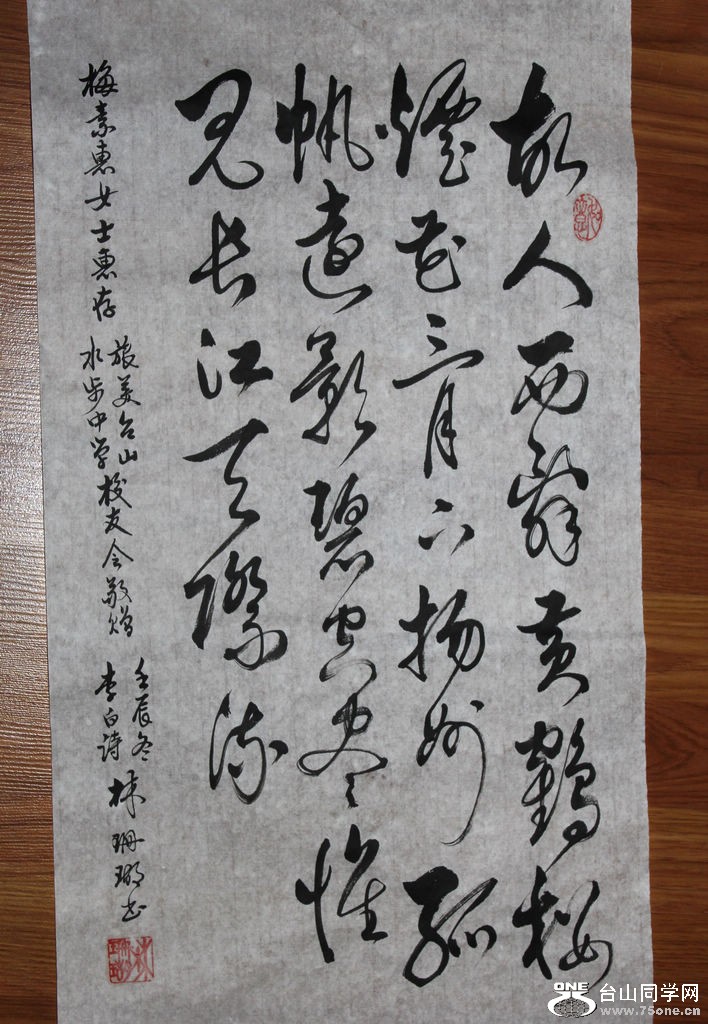 故人西辞黄鹤楼
烟花三月下扬州孤
帆远影碧空尽惟
见长江天际流
梅素惠女士惠存
旅美台山
水步中学校友会敬赠
壬辰冬
李白诗
林珊瑚书
ONE
台山同学网
www.75one.cn